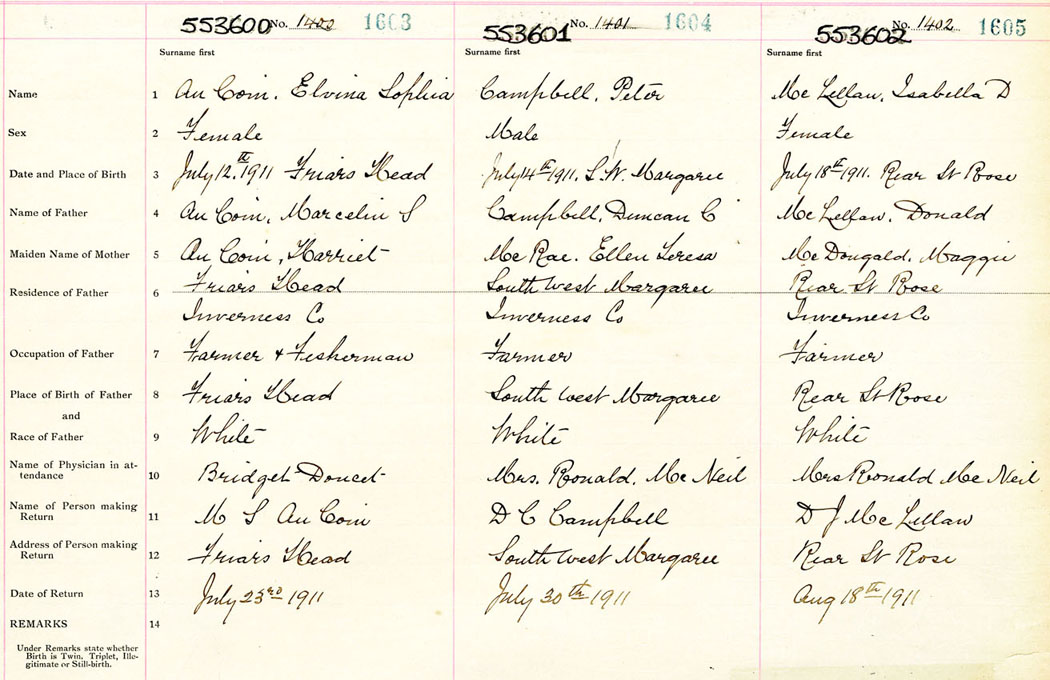 553600 No. 1400 1603 553601 No. 1401 1604 553602 No. 1402 1605
Surname first Surname first Surname first
Name 1 Au Coin, Elvina Sophia Campbell, Peter Mc Lellan, Isabella D
Sex 2 Female Male Female
Date and Place of Birth 3 July 12th, 1911 Friars Head July 14th 1911. S.W. Margaree July 18th 1911. Rear St Rose
Name of Father 4 Au Coin, Marcelin S Campbell, Duncan C Mc Lellan, Donald
Maiden Name of Mother 5 Au Coin, Harriet Mc Rae. Ellen Teresa Mc Dougald, Maggie
Residence of Father 6 Friars Head South West Margaree Rear St Rose
Inverness Co Inverness Co Inverness Co
Occupation of Father 7 Farmer + Fisherman Farmer Farmer
Place of Birth of Father 8 Friars Head South West Margaree Rear St Rose
and
Race of Father 9 White White White
Name of Physician in at-
tendance 10 Bridget Doucet Mrs. Ronald. Mc Neil Mrs Ronald Mc Neil
Name of Person making
Return 11 M S Au Coin D C Campbell D J Mc Lellan
Address of Person making
Return 12 Friars Head South West Margaree Rear St Rose
Date of Return 13 July 23rd 1911 July 30th 1911 Aug 18th 1911
REMARKS 14
Under Remarks state whether
Birth is Twin. Triplet, Ille-
gitimate or Still-birth.